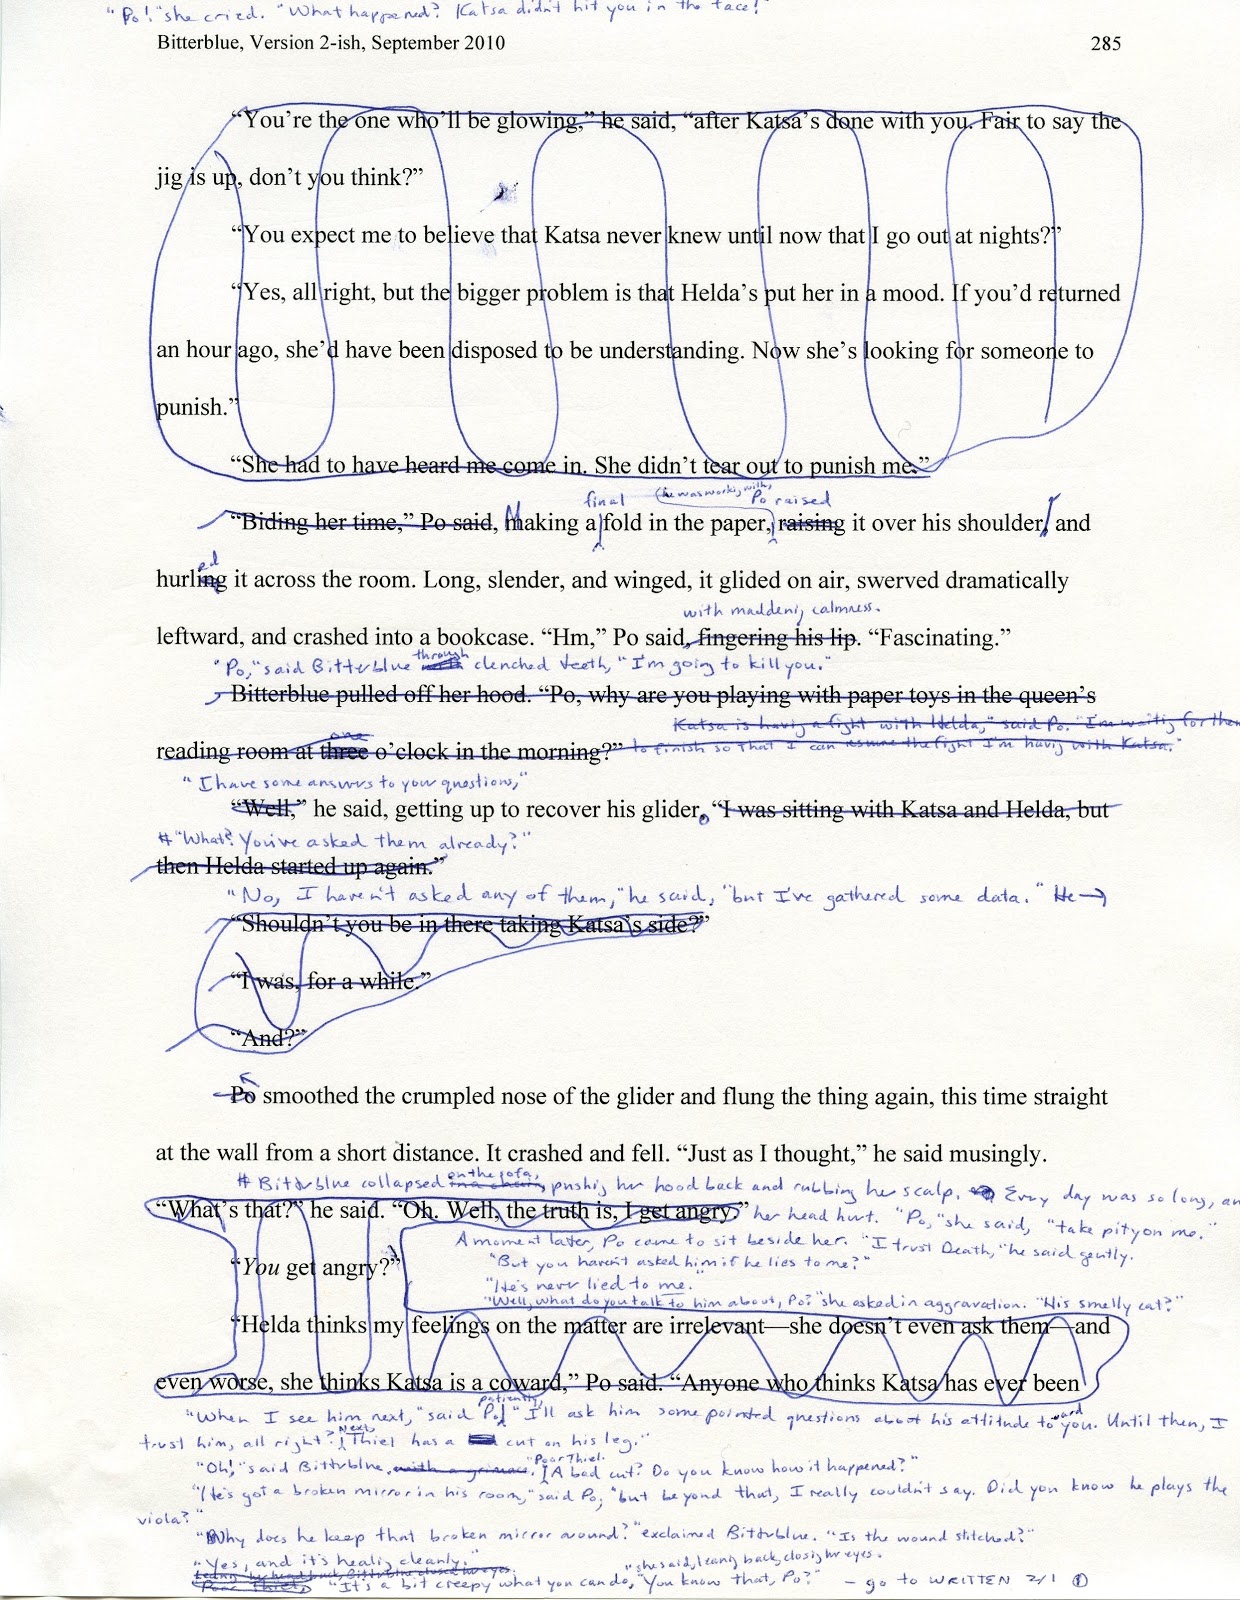 "Po!" she cried. "What happened? Katsa didn't hit you in the face!"
Bitterblue, Version 2-ish, September 2010 285
“You’re the one who’ll be glowing,” he said, “after Katsa’s done with you. Fair to say the
jig is up, don’t you think?”
“You expect me to believe that Katsa never knew until now that I go out at nights?”
“Yes, all right, but the bigger problem is that Helda’s put her in a mood. If you’d returned
an hour ago, she’d have been disposed to be understanding. Now she’s looking for someone to
punish.”
“She had to have heard me come in. She didn’t tear out to punish me.”
final (he was working with) Po raised
“Biding her time,” Po said, Making a fold in the paper, raising it over his shoulder, and
ed
hurling it across the room. Long, slender, and winged, it glided on air, swerved dramatically
with maddening calmness.
leftward, and crashed into a bookcase. “Hm,” Po said, fingering his lip. “Fascinating.”
"Po," said Bitterblue through clenched teeth, "I'm going to kill you."
Bitterblue pulled off her hood. “Po, why are you playing with paper toys in the queen’s
Katsa is having a fight with Helda," said Po. "I'm waiting for them
one
reading room at three o’clock in the morning?” to finish so that I can resume the fight I'm having with Katsa."
"I have some answers to your questions,"
“Well,” he said, getting up to recover his glider. “I was sitting with Katsa and Helda, but
# "What? You've asked them already?"
then Helda started up again.”
"No, I haven't asked any of them," he said, "but I've gathered some data." He →
“Shouldn’t you be in there taking Katsa’s side?”
“I was, for a while.”
“And?”
Po smoothed the crumpled nose of the glider and flung the thing again, this time straight
at the wall from a short distance. It crashed and fell. “Just as I thought,” he said musingly.
on the sofa,
# Bitterblue collapsed in a chair, pushing her hood back and rubbing her scalp. Every day was so long, an
“What’s that?” he said. “Oh. Well, the truth is, I get angry.” her head hurt. "Po," she said, "take pity on me."
A moment later, Po came to sit beside her. "I trust Death," he said gently.
“You get angry?” "But you haven't asked him if he lies to me?"
"He's never lied to me."
"Well, what do you talk to him about, Po?" she asked in aggravation. "His smelly cat?"
“Helda thinks my feelings on the matter are irrelevant—she doesn’t even ask them—and
even worse, she thinks Katsa is a coward,” Po said. “Anyone who thinks Katsa has ever been
patiently,
"When I see him next," said Po, "I'll ask him some pointed questions about his attitude toward you. Until then, I
trust him, all right? Next, Thiel has a cut on his leg."
"Poor Thiel.
"Oh!" said Bitterblue, with a grimace. A bad cut? Do you know how it happened?"
"He's got a broken mirror in his room," said Po, "but beyond that, I really couldn't say. Did you know he plays the
viola?"
"Why does he keep that broken mirror around?" exclaimed Bitterblue. "Is the wound stitched?"
"Yes, and it's healing cleanly."
Leaning her head back, Bitterblue closed her eyes.
" she said, leaning back, closing her eyes.
Poor Thiel, "It's a bit creepy what you can do, You know that, Po?" – go to WRITTEN 2/1 ①